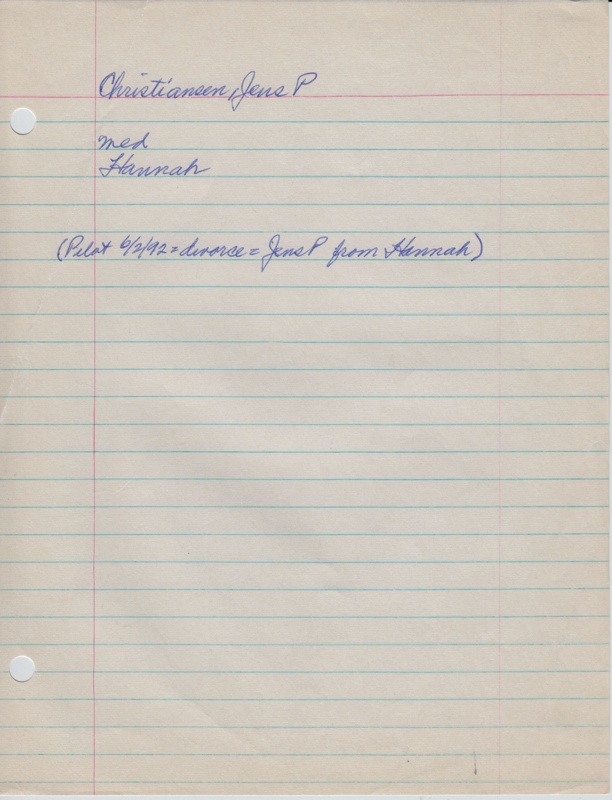 Christiansen, Jens P
med
Hannah
(Pilot 6/2/92 = divorce = Jens P from Hannah)